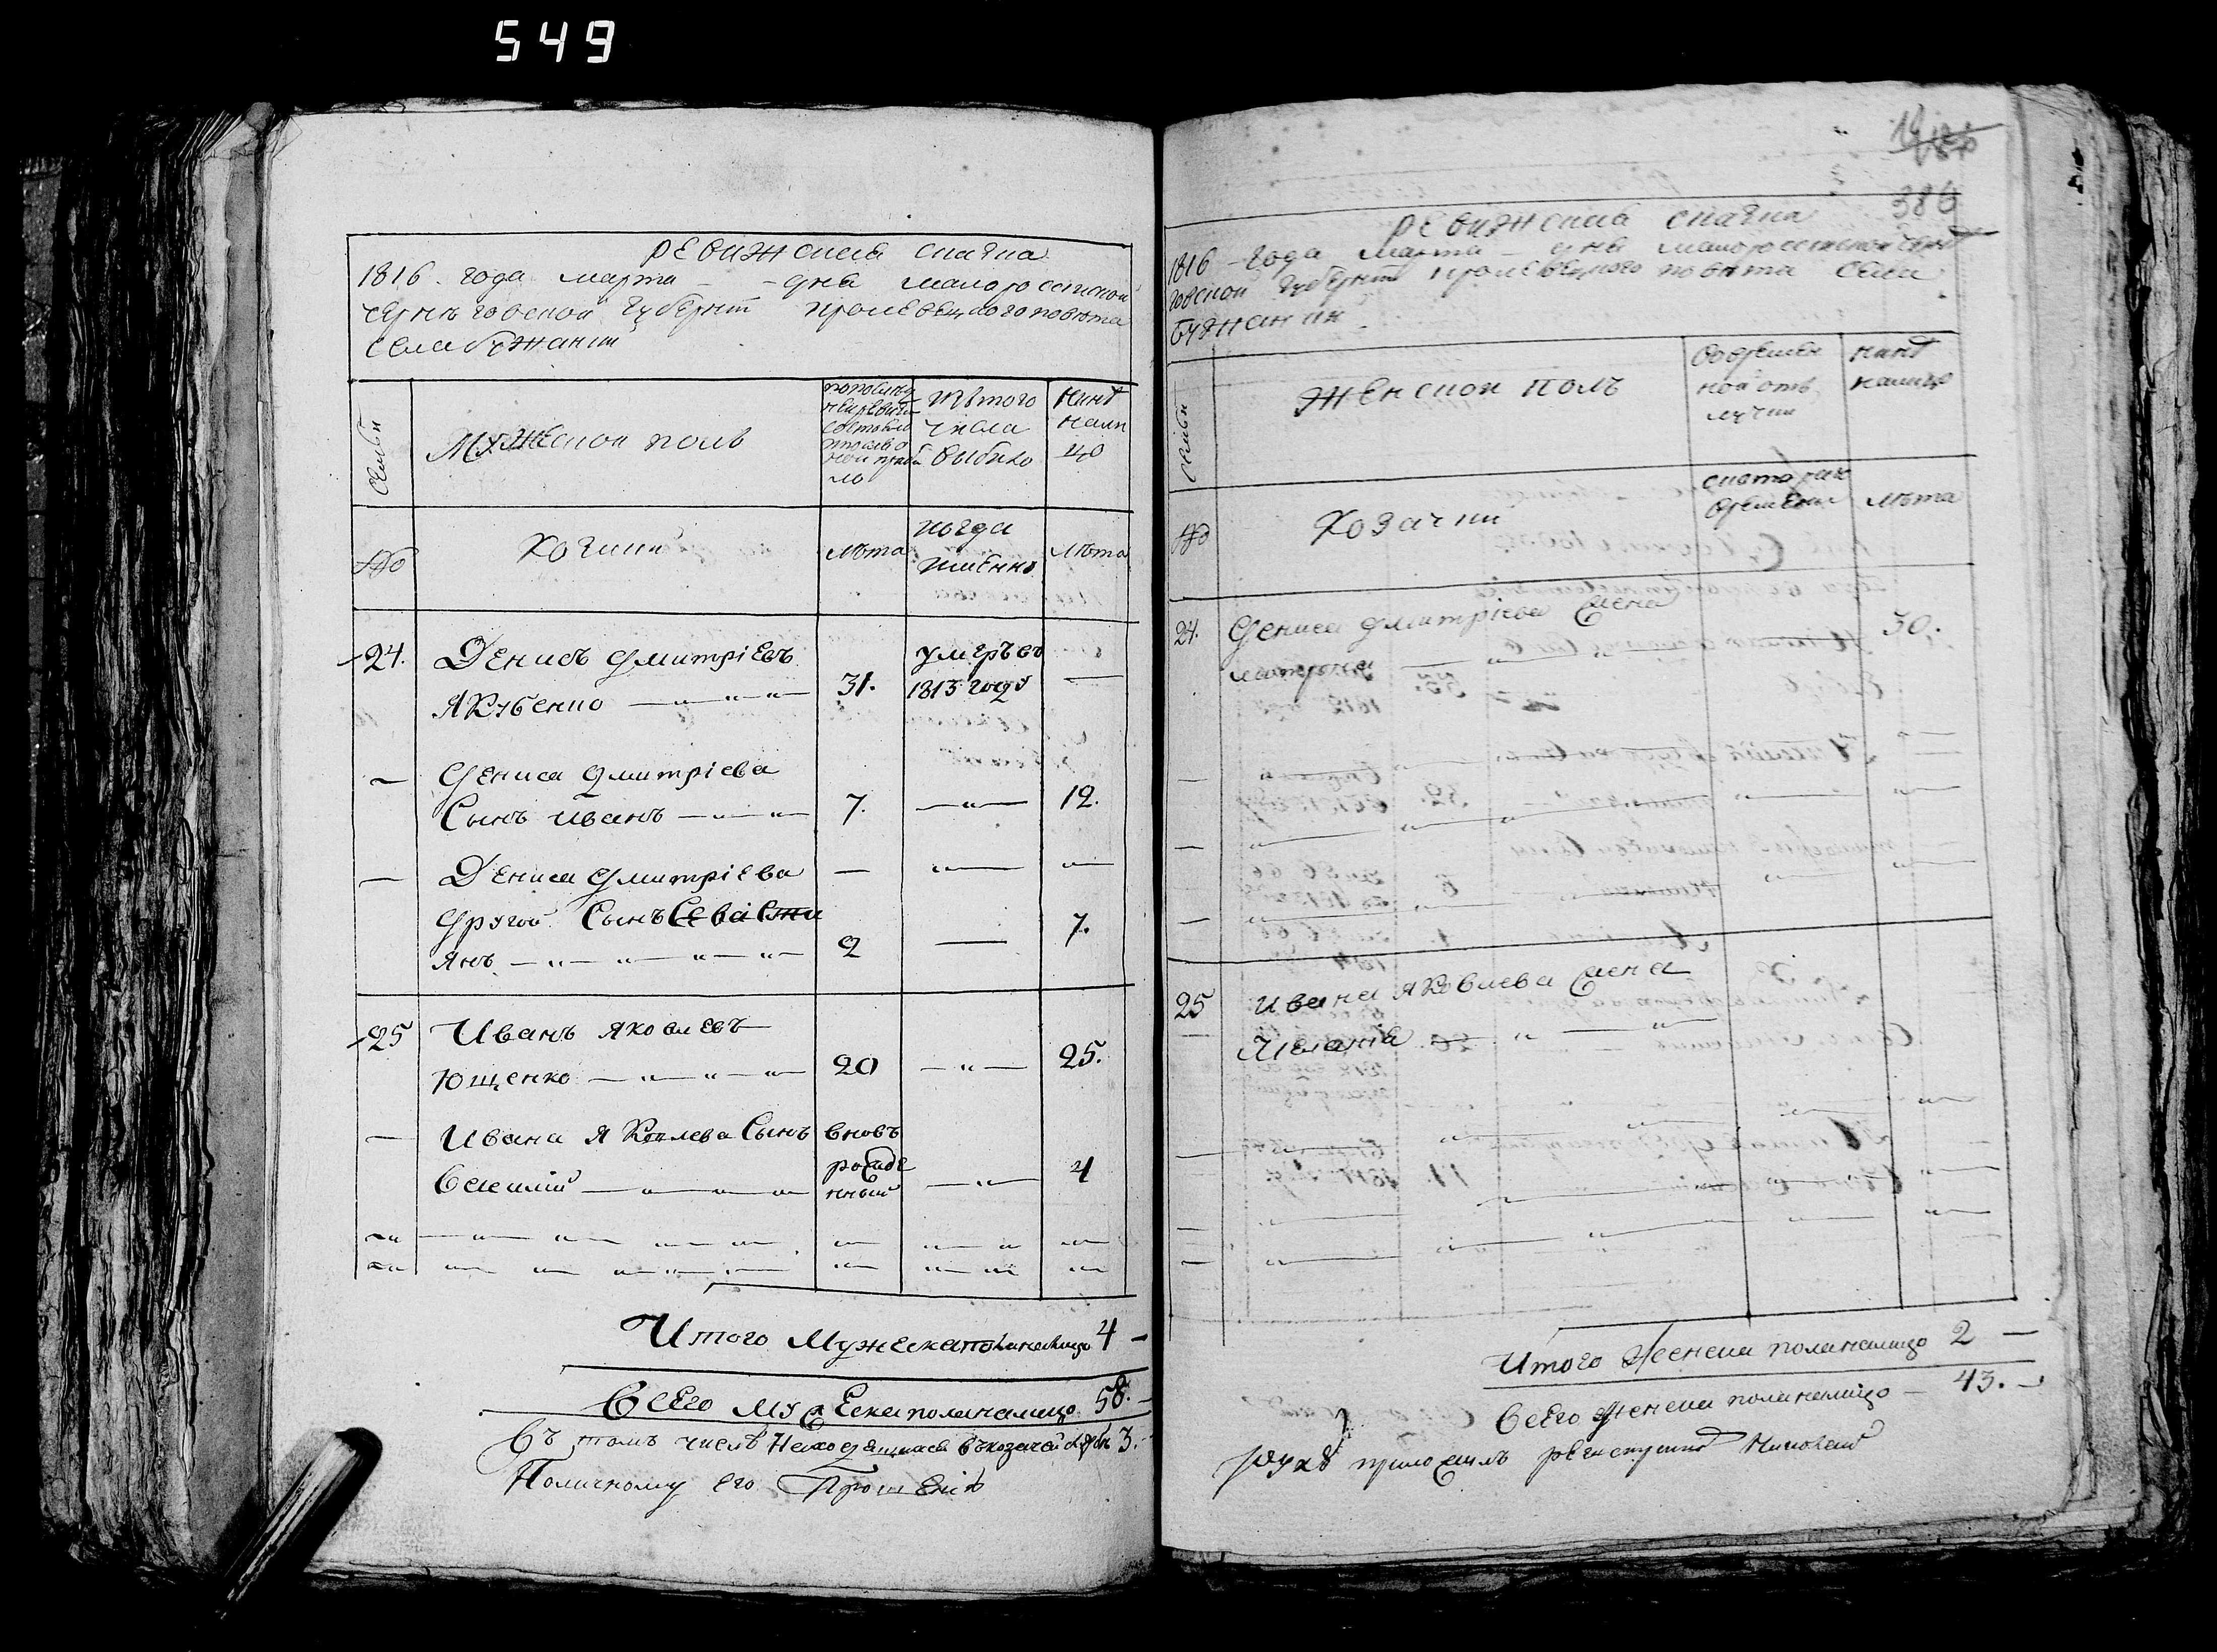 549
РЕвижская сказка
1816 года марта - дня малоросстской
чернѣговской Губернїи кролевецкого повѣта
села бужанки
Семьи
Мужеской полъ
Изътого
числа
выбыло
Нынѣ
нали
цо
№
Козачки
лѣта
когда
имЕнно
лѣта
24. ДЕнисъ дмитрїЕвъ
Якубенко
31.
умеръ въ
1813 году
дениса дмитрїева
Сынъ иванъ 7. 12.
ДЕниса дмитрїЕва
другой Сынъ Севастї
янъ 2 7.
25 Иванъ яковлЕвъ
Ющенко 20 25.
Ивана яковлева Сынъ вновь
рожде
нный
василїй 4
Итого Мужеска пола налицо 4
ВсЕго мужЕска пола налицо 58.
Въ томъ числѣ Находящихся въ козачей службѣ 3.
Поличному его ПрошЕнїю
386
РЕвижская сказка
1816 года марта - дня малоросстской черни
говской Губернїи кролевецкого повѣта села
бужанки
Семьи
жЕнской полъ
во врЕмЕн
ной отъ
лучки
нынѣ
налицо
№
Козачки
скоторих
врЕмЕни
лѣта
24. дениса дмитрїева жена
матрона 30.
25 ивана яковлева жена
Меланїя
Итого женска пола налицо 2
ВсЕго женска пола налицо 43.
руку приложилъ